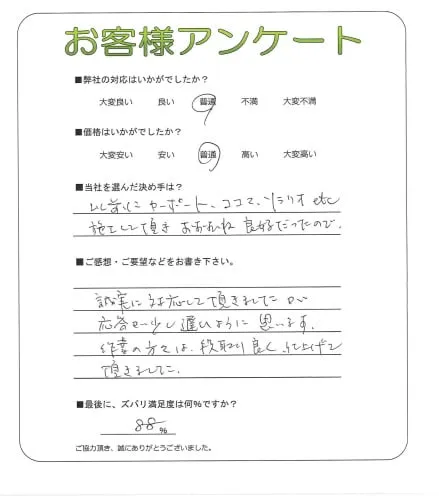 お客様アンケート
■弊社の対応はいかがでしたか?
大変良い 良い 普通 不満 大変不満
■価格はいかがでしたか?
大変安い 安い 普通 高い 大変高い
■当社を選んだ決め手は?
以前にカーポート、ココマ、ソラリオ etc
施工して頂き おおむね 良好だったので、
■ご感想・ご要望などをお書き下さい。
誠実に対応して頂きましたが
応答が少し遅いように思います。
作業の方々は、段取り良く、仕上げて
頂きました。
■最後に、ズバリ満足度は何%ですか?
88%
ご協力頂き、誠にありがとうございました。